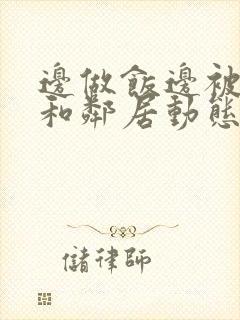 邊做飯邊被
和鄰居動態
儲律師